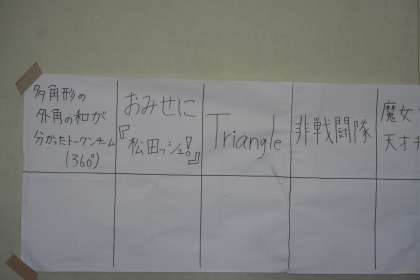 多角形の
外角の和が
分かったトークンチーム
(360°)
おみせに
『松田ッシュ!』
Triangle
非戦闘隊
魔女
天才